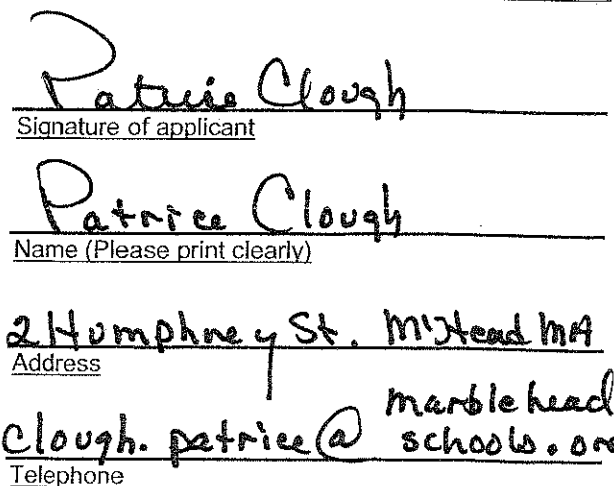 Patricie Clough
Signature of applicant
Patrice Clough
Name (Please print clearly)
2 Humphrey St. M'Head MA
Address
marblehead
clough.patrice@ schools.or
Telephone